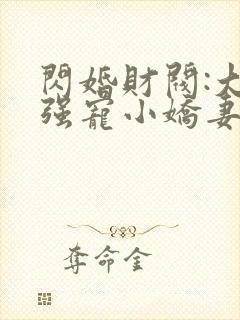 閃婚財閥:大
强寵小嬌妻
奪命金